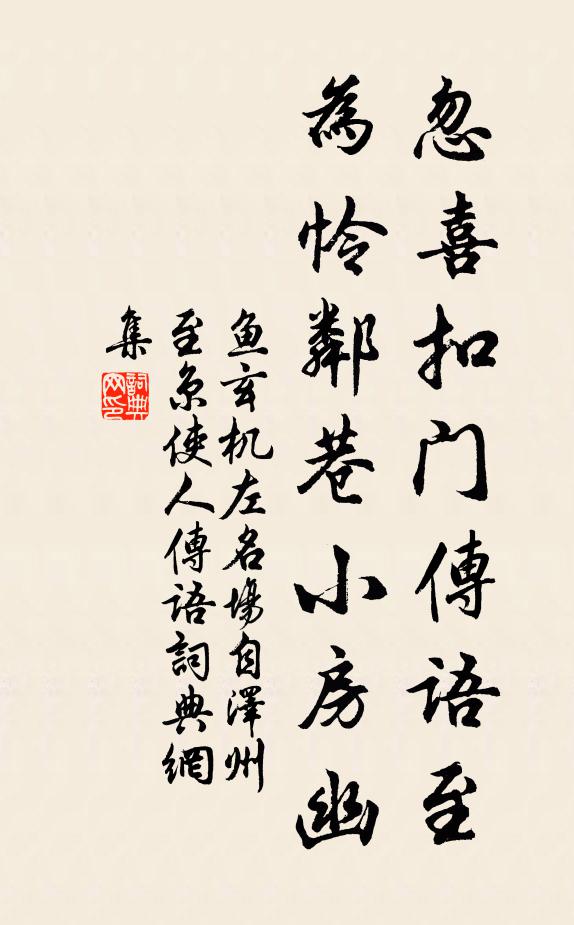 忽喜扣门傳语至
為怜鄰巷小房幽
鱼玄机左名場自澤州
至京使人傳语詞典網
集
詞典
网印